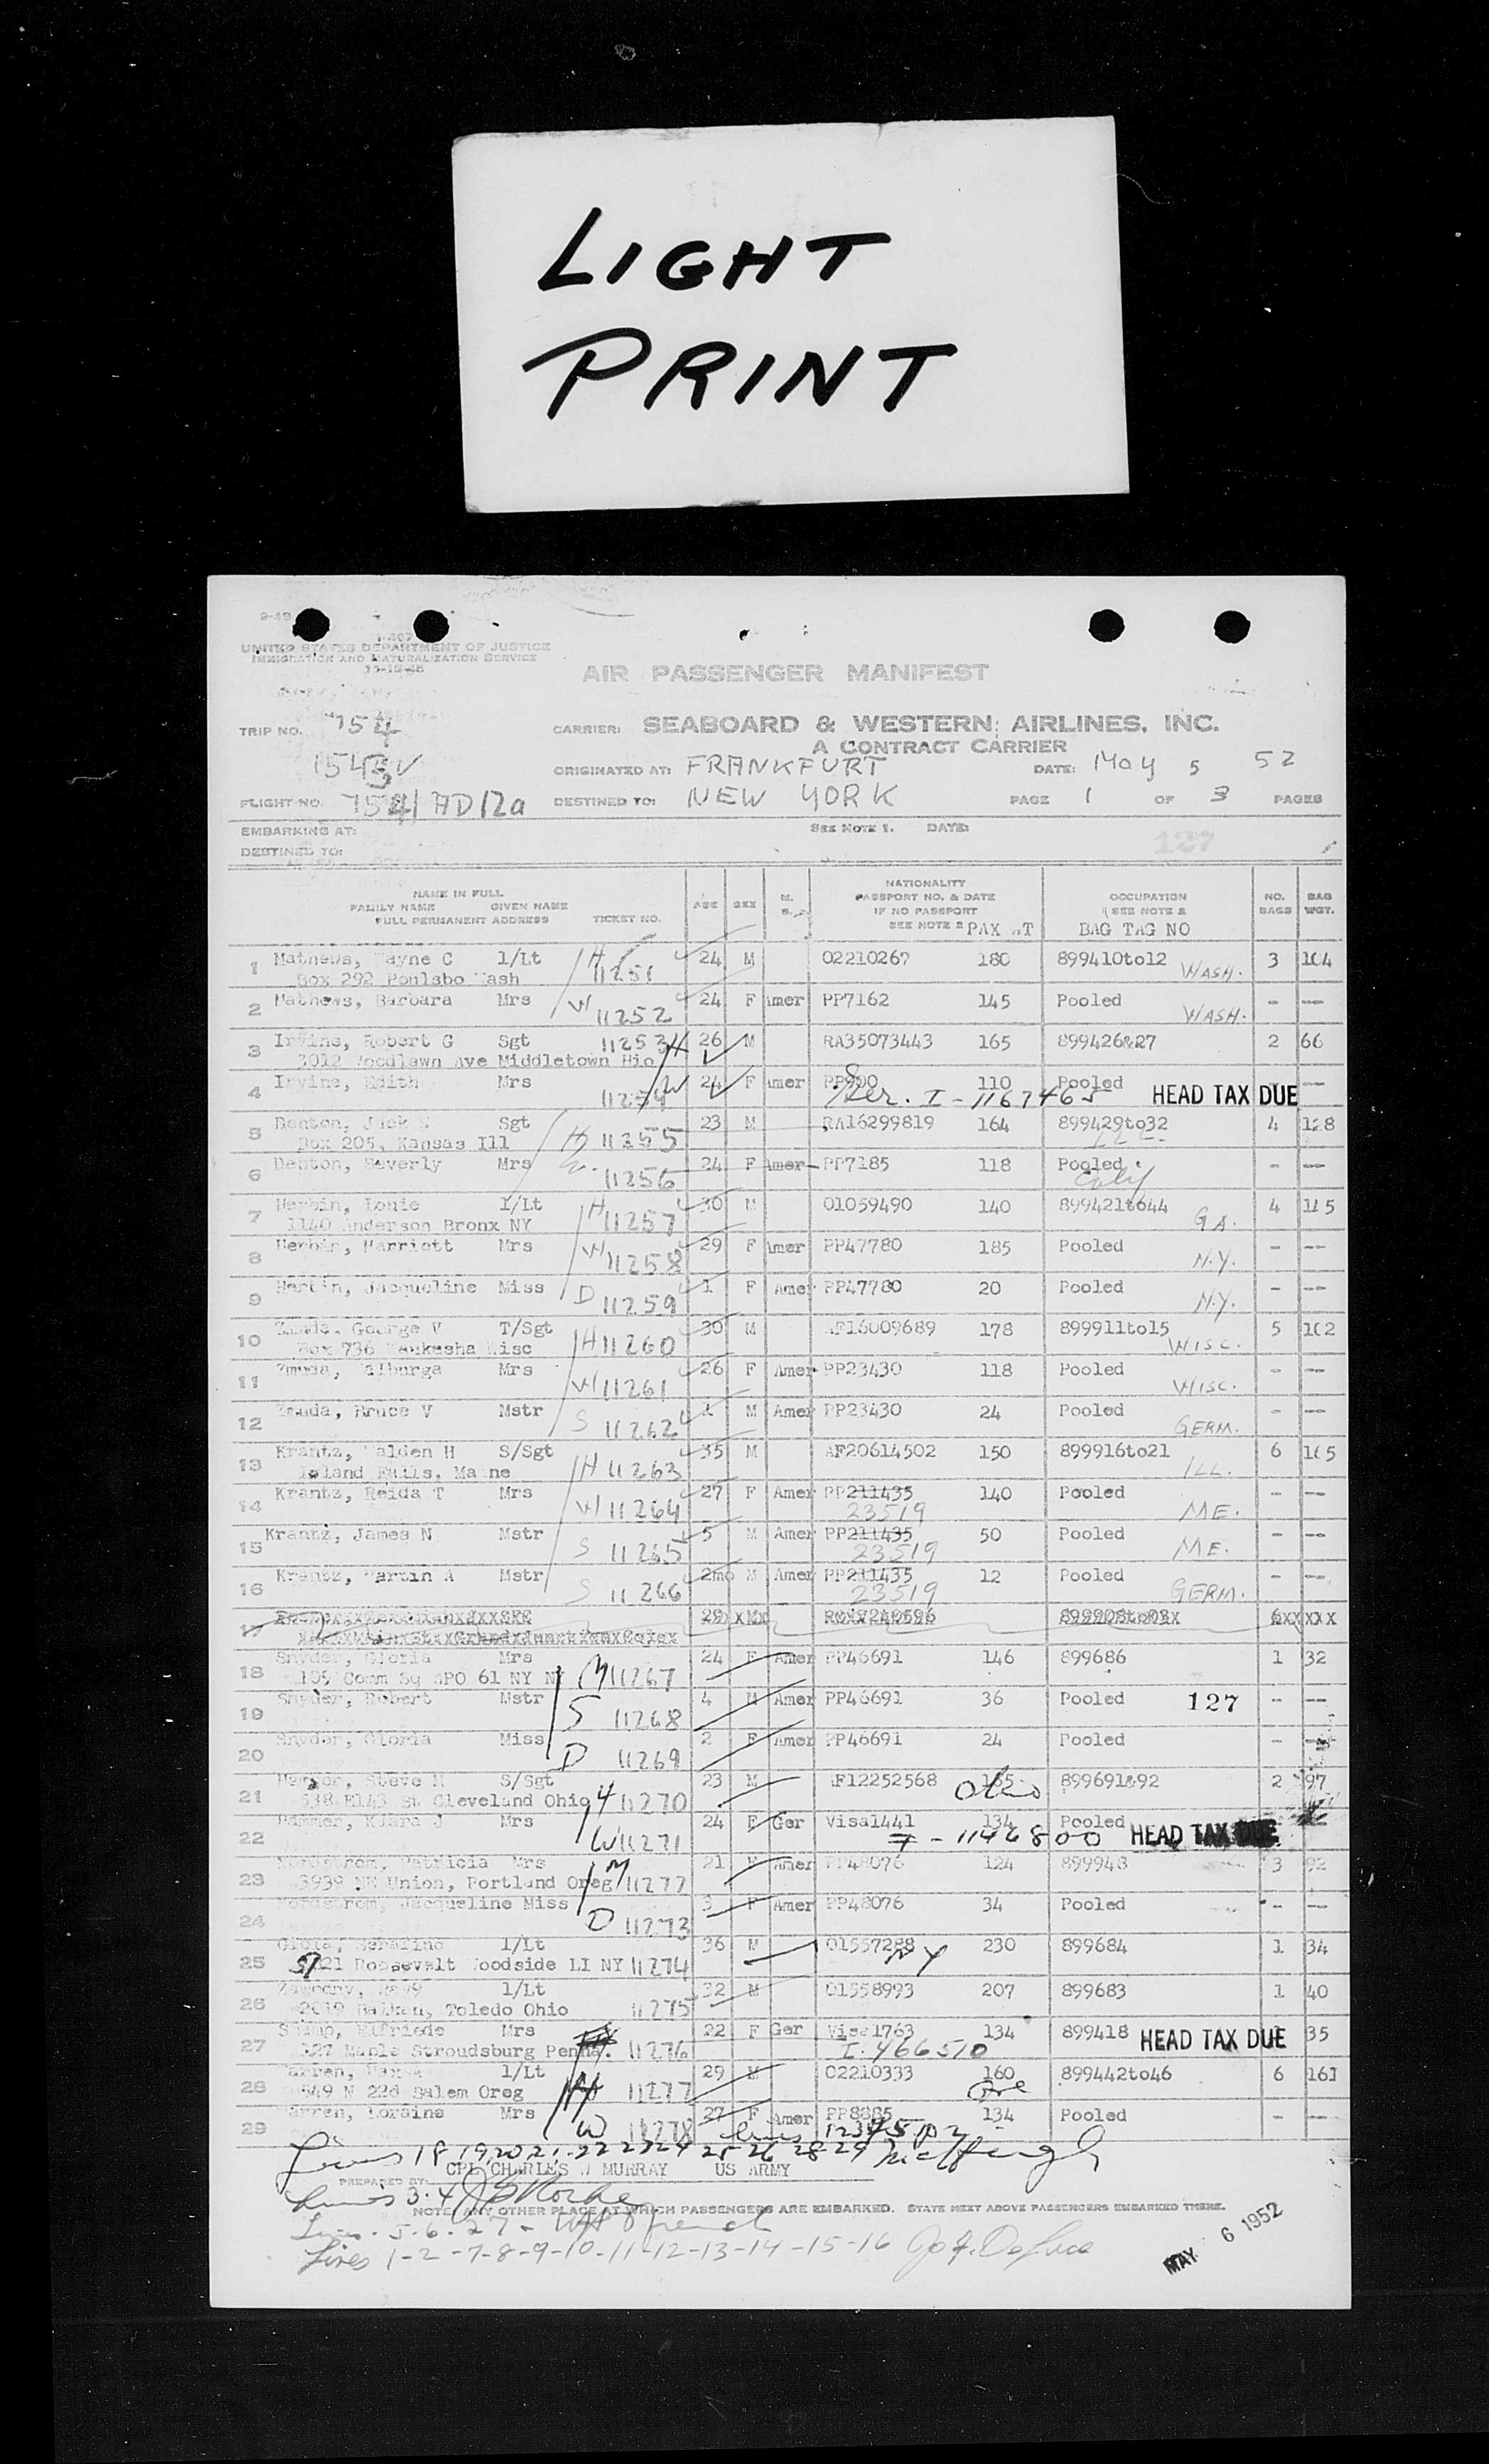 LIGHT
PRINT
9-49
I-407
UNITED STATES DEPARTMENT OF JUSTICE
IMMIGRATION AND NATURALIZATION SERVICE
AIR PASSENGER MANIFEST
TRIP NO. 754
CARRIER: SEABOARD & WESTERN AIRLINES, INC.
A CONTRACT CARRIER
ORIGINATED AT: FRANKFURT DATE: May 5 52
FLIGHT NO. DESTINED TO: NEW YORK PAGE 1 OF 3 PAGES
EMBARKING AT: SEE NOTE 1. DATE:
DESTINED TO: 127
NAME IN FULL
FAMILY NAME GIVEN NAME
FULL PERMANENT ADDRESS TICKET NO. AGE SEX M. S.
NATIONALITY
PASSPORT NO. & DATE
IF NO PASSPORT
SEE NOTE 2 PAX WT
OCCUPATION
SEE NOTE 2
BAG TAG NO
NO. BAGS BAG WGT.
1 Mathews, Wayne C 1/Lt H 11251 24 M 02210267 180 899410to12 WASH. 3 104
Box 292 Poulsbo Wash
2 Mathews, Barbara Mrs W 11252 24 F Amer PP7162 145 Pooled WASH. - --
3 Irvine, Robert G Sgt 11253 H 26 M RA35073443 165 899426&27 2 66
3012 Woodlawn Ave Middletown Hio
4 Irvine, Edith Mrs W 11254 24 F Amer PP900 110 Pooled - --
Ser. I-1167465 HEAD TAX DUE
5 Denton, Jack Sgt H 11255 23 M RA16299819 164 899429to32 4 128
Box 205, Kansas Ill
6 Denton, Beverly Mrs W 11256 24 F Amer PP7185 118 Pooled Calif - --
7 Herbin, Louie 1/Lt H 11257 30 M 01059490 140 GA. 4
1140 Anderson Bronx NY
8 Herbin, Harriett Mrs W 11258 29 F Amer PP47780 185 Pooled N.Y. - --
9 Jacqueline Miss D 11259 1 F Amer PP47780 20 Pooled N.Y. - --
10 Zmuda, George V T/Sgt H 11260 30 M AF16009689 178 899911to15 WISC. 5 102
Box 736 Waukesha Wisc
11 Zmuda, Walburga Mrs W 11261 26 F Amer PP23430 118 Pooled WISC. - --
12 Zmuda, Bruce V Mstr S 11262 1 M Amer PP23430 24 Pooled GERM. - --
13 Krantz, Walden H S/Sgt H 11263 35 M AF20614502 150 899916to21 ILL. 6 165
Island Falls, Maine
14 Krantz, Reida T Mrs W 11264 27 F Amer PP211435 140 Pooled ME. - --
23519
15 Krantz, James N Mstr S 11265 5 M Amer PP211435 50 Pooled ME. - --
23519
16 Krantz, Martin A Mstr S 11266 2mo M Amer PP211435 12 Pooled GERM. - --
23519
17
18 Snyder, Gloria Mrs M 11267 24 F Amer PP46691 146 899686 1 32
109 Comm Sq APO 61 NY NY
19 Snyder, Robert Mstr S 11268 4 M Amer PP46691 36 Pooled 127 - --
20 Snyder, Gloria Miss D 11269 2 F Amer PP46691 24 Pooled -
21 Steve M S/Sgt H 11270 23 M AF12252568 165 Ohio 899691&92 2 97
538 E143 St Cleveland Ohio
22 Klara J Mrs W 11271 24 F Ger Visa1441 134 Pooled
I-1146800 HEAD TAX DUE
23 Nordstrom, Patricia Mrs M 11272 21 F Amer PP48076 124 899948 3 92
3939 NE Union, Portland Oreg
24 Nordstrom, Jacqueline Miss D 11273 3 F Amer PP48076 34 Pooled - --
25 Serafino 1/Lt 11274 36 M 01557288 NY 230 899684 1 34
Roosevelt Woodside LI NY
26 1/Lt 11275 32 M 01558993 207 899683 1 40
2019 Toledo Ohio
27 Elfriede Mrs 11276 22 F Ger Visa1763 134 899418 HEAD TAX DUE 35
327 Maple Stroudsburg Penna. I.466510
28 Warren, 1/Lt H 11277 29 M 02210333 160 Ore 899442to46 6 161
N 22d Salem Oreg
29 Warren, Loraine Mrs W 11278 27 F Amer PP8885 134 Pooled - --
Lines 18 19 20 21 22 23 24 25 26 28 29
PREPARED BY: CPL CHARLES J MURRAY US ARMY
Lines 3.4
NOTE: ANY OTHER PLACE AT WHICH PASSENGERS ARE EMBARKED. STATE NEXT ABOVE PASSENGERS EMBARKED THERE.
Lines 5.6.27
Lines 1-2-7-8-9-10-11-12-13-14-15-16
MAY 6 1952